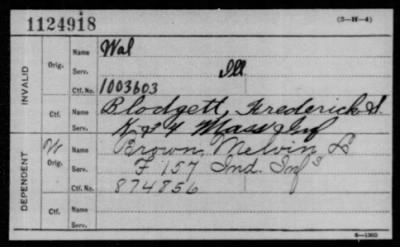 1124918
(3-H-4)
INVALID
Orig.
Name Wal
Serv. Ill
Ctf. No. 1003603
Ctf.
Name Blodgett, Frederick S.
Serv. K 4 Mass Inf
DEPENDENT
Orig.
Name Brown, Melvin L
Serv. F 157 Ind. Inf
Ctf. No. 874856
Ctf.
Name
Serv.